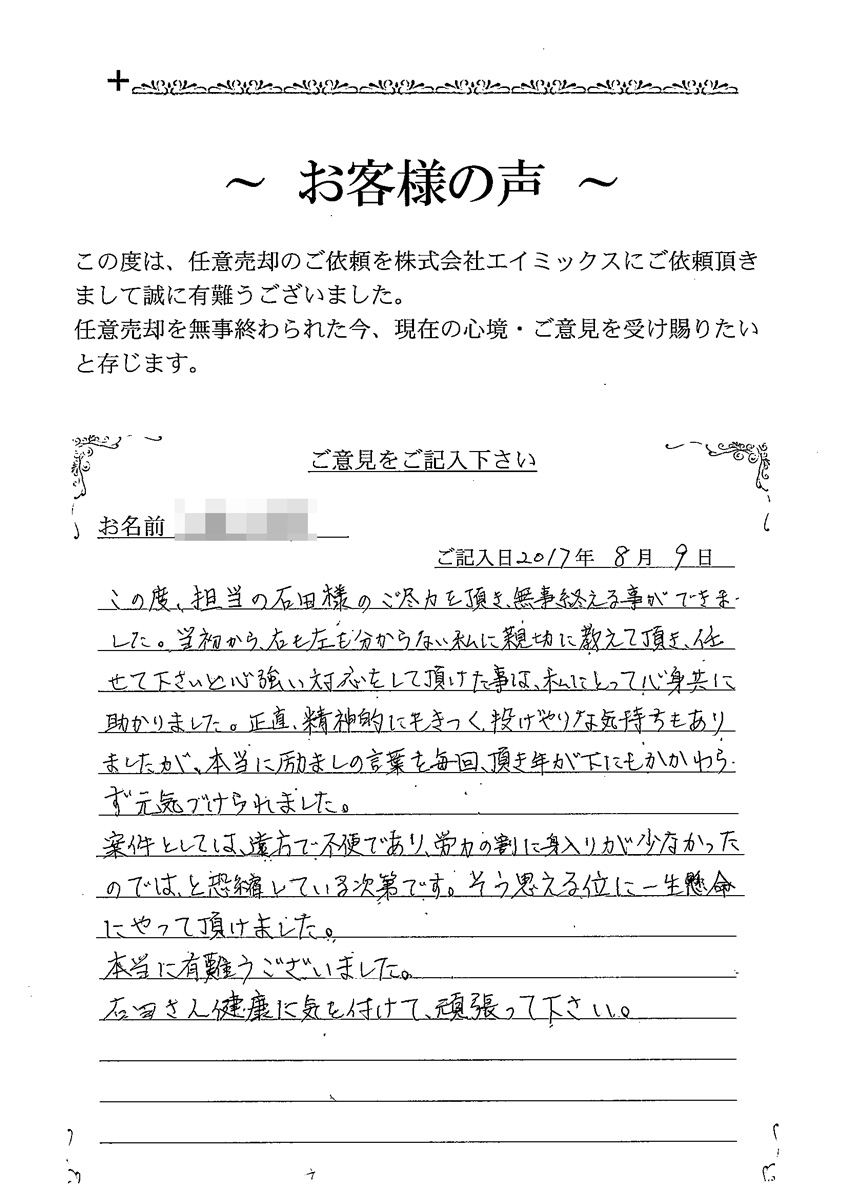 ～ お客様の声 ～
この度は、任意売却のご依頼を株式会社エイミックスにご依頼頂き
まして誠に有難うございました。
任意売却を無事終わられた今、現在の心境・ご意見を受け賜りたい
と存じます。
ご意見をご記入下さい
お名前
ご記入日2017年 8月 9日
この度、担当の石田様のご尽力を頂き、無事終える事ができま
した。当初から、右も左も分からない私に親切に教えて頂き、任
せて下さいと心強い対応をして頂けた事は、私にとって心身共に
助かりました。正直、精神的にもきつく、投げやりな気持ちもあり
ましたが、本当に励ましの言葉を毎回、頂き年が下にもかかわら
ず元気づけられました。
案件としては、遠方で不便であり、労力の割に身入りが少なかった
のでは、と恐縮している次第です。そう思える位に一生懸命
にやって頂けました。
本当に有難うございました。
石田さん健康に気を付けて、頑張って下さい。